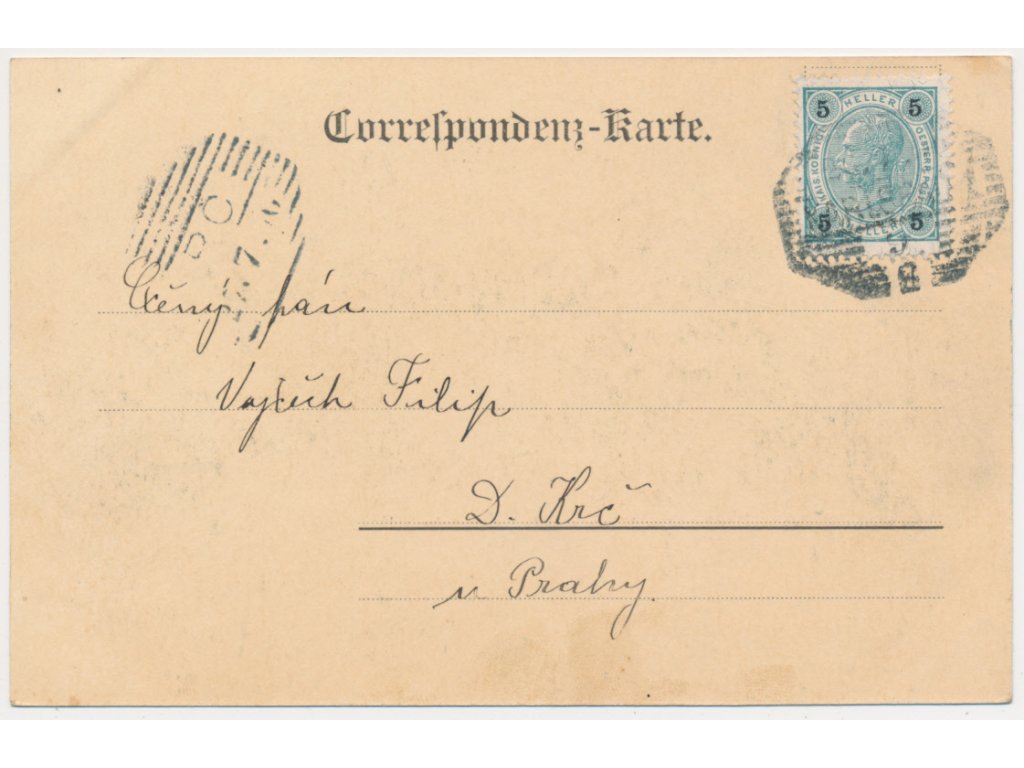 Correspondenz-Karte.
5 HELLER 5
KAIS. KOENIGL. OESTERR. POST
5 5
Ctěný pán
Vojtěch Filip
D. Krč
u Prahy.